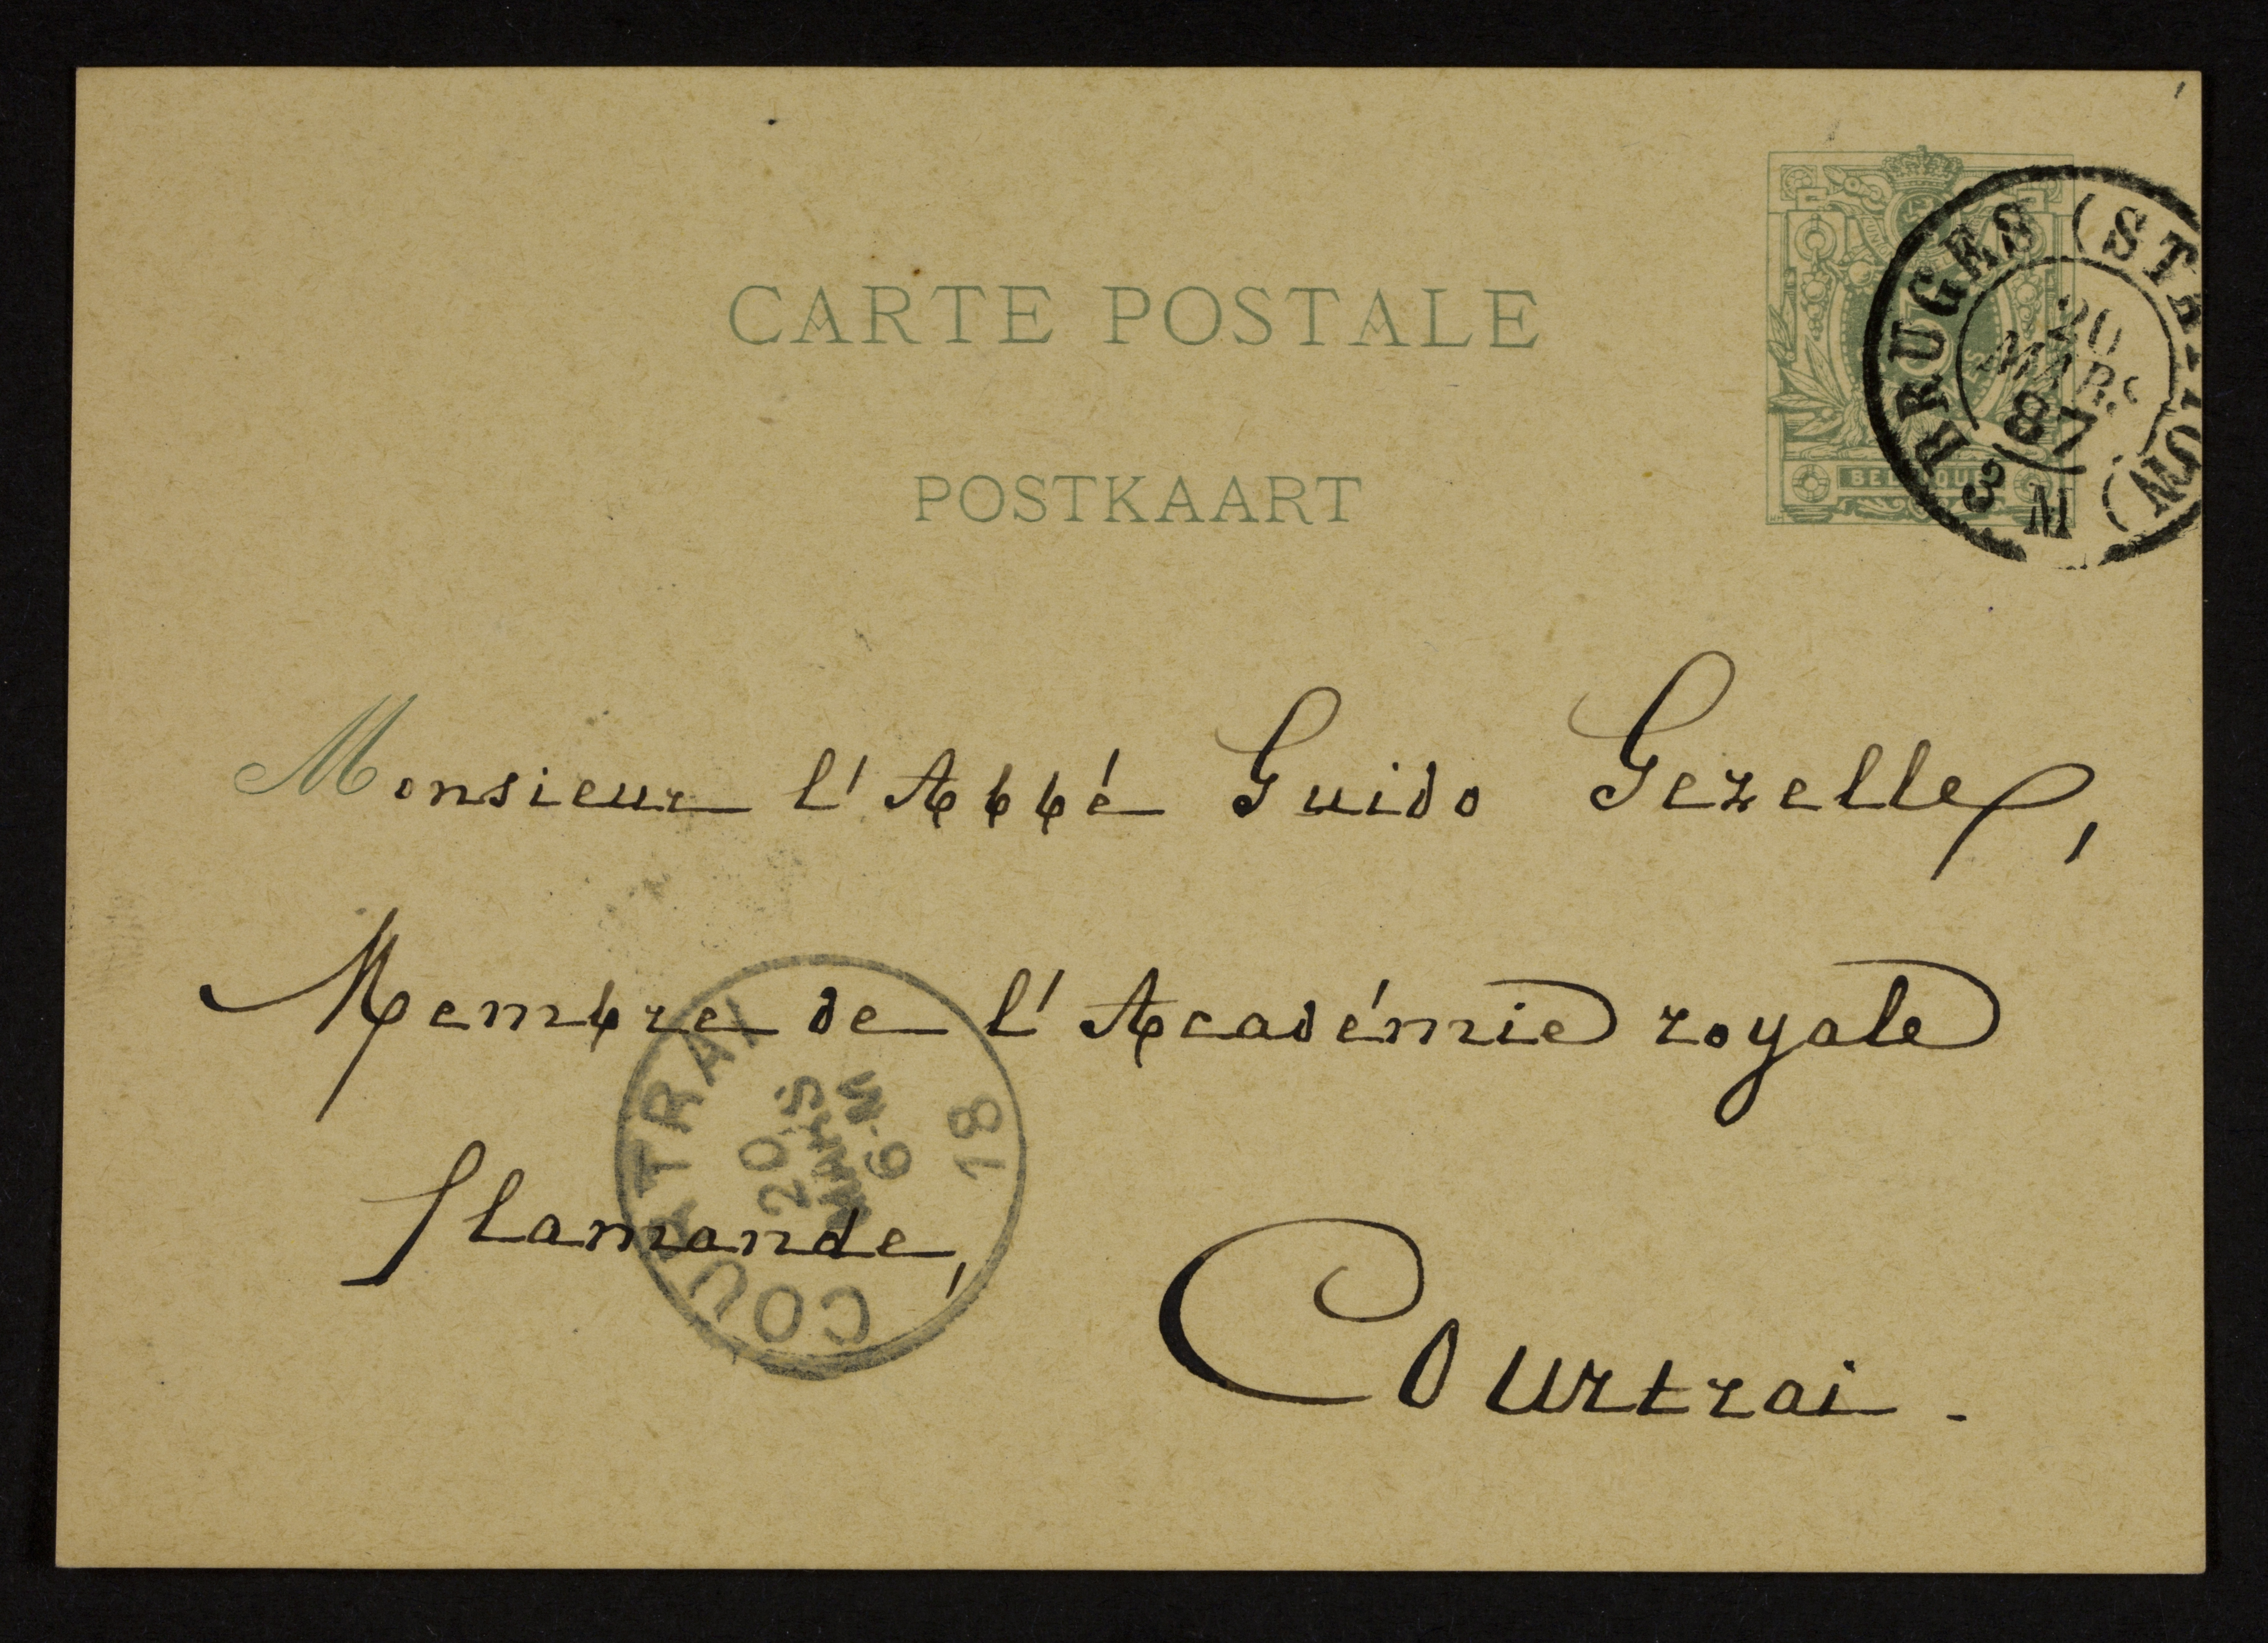 CARTE POSTALE
POSTKAART
BRUGES (STATION)
20
MARS
87
3 M
BELGIQUE
Monsieur l'Abbé Guido Gezelle,
Membre de l'Académie royale
flamande,
Courtrai.
COURTRAI
20
MARS
6-M
18